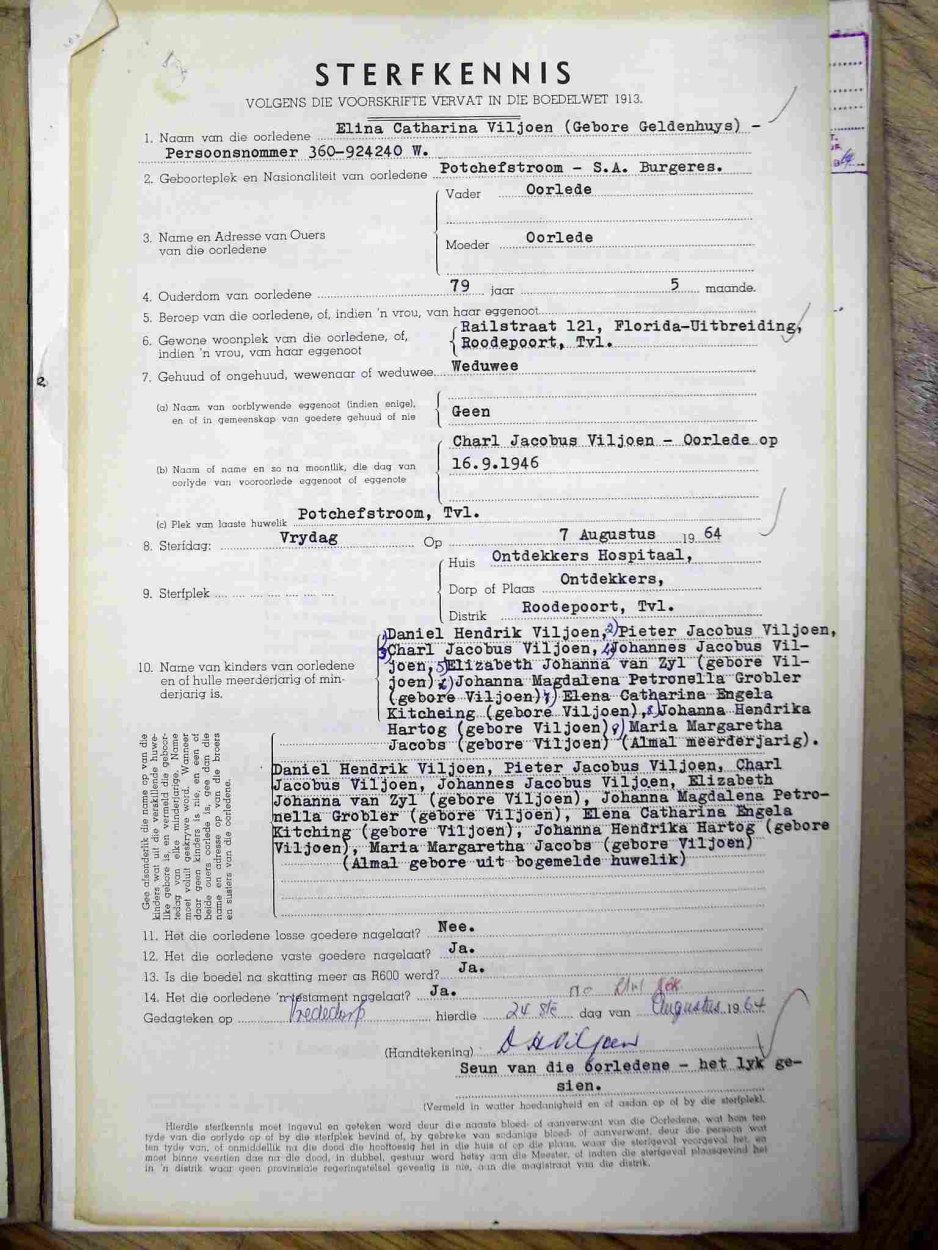 STERFKENNIS
VOLGENS DIE VOORSKRIFTE VERVAT IN DIE BOEDELWET 1913.
1. Naam van die oorledene Elina Catharina Viljoen (Gebore Geldenhuys) -
Persoonsnommer 360-924240 W.
2. Geboorteplek en Nasionaliteit van oorledene Potchefstroom - S.A. Burgeres.
3. Name en Adresse van Ouers
van die oorledene
Vader Oorlede
Moeder Oorlede
4. Ouderdom van oorledene 79 jaar 5 maande.
5. Beroep van die oorledene, of, indien 'n vrou, van haar eggenoot
6. Gewone woonplek van die oorledene, of,
indien 'n vrou, van haar eggenoot
Railstraat 121, Florida-Uitbreiding,
Roodepoort, Tvl.
7. Gehuud of ongehuud, wewenaar of weduwee Weduwee
(a) Naam van oorblywende eggenoot (indien enige),
en of in gemeenskap van goedere gehuud of nie
Geen
(b) Naam of name en so na moontlik, die dag van
oorlyde van vooroorlede eggenoot of eggenote
Charl Jacobus Viljoen - Oorlede op
16.9.1946
(c) Plek van laaste huwelik Potchefstroom, Tvl.
8. Sterfdag: Vrydag Op 7 Augustus 1964
9. Sterfplek
Huis Ontdekkers Hospitaal,
Dorp of Plaas Ontdekkers,
Distrik Roodepoort, Tvl.
10. Name van kinders van oorledene
en of hulle meerderjarig of min-
derjarig is.
1) Daniel Hendrik Viljoen, 2) Pieter Jacobus Viljoen,
3 Charl Jacobus Viljoen, 4 Johannes Jacobus Vil-
joen, 5) Elizabeth Johanna van Zyl (gebore Vil-
joen) 6) Johanna Magdalena Petronella Grobler
(gebore Viljoen) 7) Elena Catharina Engela
Kitcheing (gebore Viljoen), 8) Johanna Hendrika
Hartog (gebore Viljoen) 9) Maria Margaretha
Jacobs (gebore Viljoen) (Almal meerderjarig).
Gee afsonderlik die name op van die
kinders wat uit die verskillende huwe-
like gebore is, en vermeld die geboor-
tedag van elke minderjarige. Name
moet voluit geskrywe word. Wanneer
daar geen kinders is nie, en een of
beide ouers oorlede is, gee dan die
name en adresse op van die broers
en susters van die oorledene.
Daniel Hendrik Viljoen, Pieter Jacobus Viljoen, Charl
Jacobus Viljoen, Johannes Jacobus Viljoen, Elizabeth
Johanna van Zyl (gebore Viljoen), Johanna Magdalena Petro-
nella Grobler (gebore Viljoen), Elena Catharina Engela
Kitching (gebore Viljoen), Johanna Hendrika Hartog (gebore
Viljoen), Maria Margaretha Jacobs (gebore Viljoen)
(Almal gebore uit bogemelde huwelik)
11. Het die oorledene losse goedere nagelaat? Nee.
12. Het die oorledene vaste goedere nagelaat? Ja.
13. Is die boedel na skatting meer as R600 werd? Ja.
14. Het die oorledene 'n testament nagelaat? Ja. no
Gedagteken op Vrededorp hierdie 24 ste dag van Augustus 1964
(Handtekening) D H Viljoen
Seun van die oorledene - het lyk ge-
sien.
(Vermeld in watter hoedanigheid en of asdan op of by die sterfplek).
Hierdie sterfkennis moet ingevul en geteken word deur die naaste bloed- of aanverwant van die Oorledene, wat hom ten
tyde van die oorlyde op of by die sterfplek bevind of, by gebreke van sodanige bloed- of aanverwant, deur die persoon wat
ten tyde van, of onmiddellik na die dood die hooftoesig het in die huis of op die plaas, waar die sterfgeval voorgeval het, en
moet binne veertien dae na die dood, in dubbel, gestuur word hetsy aan die Meester, of indien die sterfgeval plaasgevind het
in 'n distrik waar geen provinsiale regeringsetel gevestig is nie, aan die magistraat van die distrik.